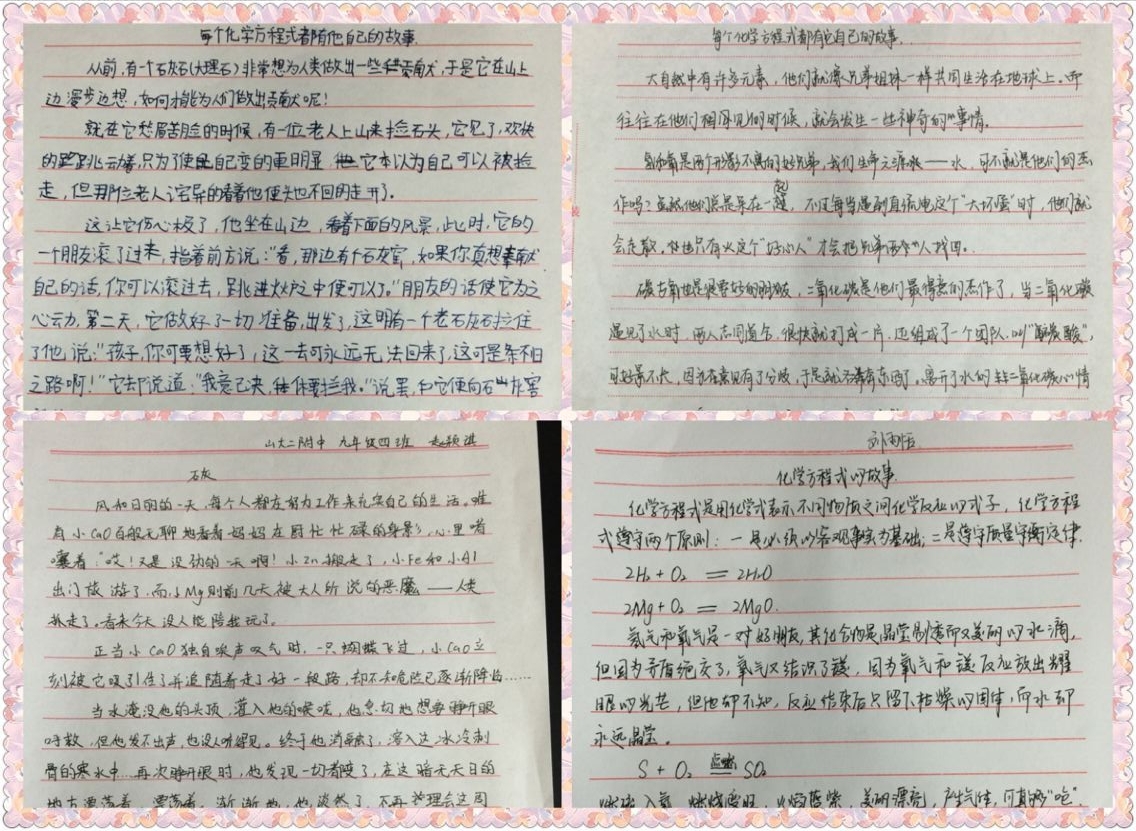 每个化学方程式都有他自己的故事.
从前,有一个石灰石(大理石)非常想为人类做出一些贡献,于是它在山上
边漫步边想,如何才能为人们做出贡献呢!
就在它愁眉苦脸的时候,有一位老人上山来捡石头,它见了,欢快
的跳动着,只为了使自己变的更明显,它本以为自己可以被捡
走,但那位老人诧异的看着他便头也不回的走开了。
这让它伤心极了,他坐在山边,看着下面的风景,此时,它的
一个朋友滚了过来,指着前方说:“看,那边有个石灰窑,如果你真想奉献
自己的话,你可以滚过去,跳进火炉之中便可以了。”朋友的话使它为之
心动,第二天,它做好了一切准备,出发了,这时有一个老石灰石拉住
了他,说:“孩子,你可要想好了,这一去可永远无法回来了,这可是条不归
之路啊!”它却说道:“我意已决,休要拦我。”说罢,它便向石灰窑
每个化学方程式都有它自己的故事.
大自然中有许多元素,他们就像兄弟姐妹一样共同生活在地球上。而
往往在他们相遇见的时候,就会发生一些神奇的事情。
氢和氧是两个形影不离的好兄弟,我们生命之源泉——水,可不就是他们的杰
作吗?虽然他们总是呆在一起,不过每当遇到直流电这个“大坏蛋”时,他们就
会走散,但也只有火这个“好心人”才会把兄弟两个人找回。
碳与氧也是很要好的朋友,二氧化碳是他们最得意的杰作了,当二氧化碳
遇见了水时,两人志同道合,很快就打成一片,还组成了一个团队,叫“碳酸”,
可好景不长,因为意见有了分歧,于是就分道了。离开了水的二氧化碳心情
山大二附中 九年级四班
石灰
风和日丽的一天,每个人都在努力工作来充实自己的生活。唯
有小CaO百般无聊地看着妈妈在厨忙忙碌的身影,心里嘀
囔着:“哎!又是没劲的一天啊!小Zn搬走了,小Fe和小Al
出门旅游了,而小Mg则前几天被大人所说的恶魔——人类
抓走了。看来今天没人能陪我玩了。
正当小CaO独自唉声叹气时,一只蝴蝶飞过,小CaO立
刻被它吸引住了并追随着走了好一段路,却不知危险已逐渐降临……
当水淹没他的头顶,灌入他的喉咙,他急切地想要睁开眼
呼救,但他发不出声,也没人听得见。终于他消融了,溶入这冰冷刺
骨的寒水中…再次睁开眼时,他发现一切都变了,在这暗无天日的
地方漂荡着,漂荡着,渐渐地,他淡然了,不再理会这周
化学方程式的故事.
化学方程式是用化学式表示不同物质之间化学反应的式子,化学方程
式遵守两个原则:一是必须以客观事实为基础;二是遵守质量守恒定律.
2H₂+O₂ ══ 2H₂O
2Mg+O₂ ══ 2MgO.
氢气和氧气是一对好朋友,其化合物是晶莹剔透而又美丽的水滴,
但因为矛盾绝交了,氧气又结识了镁,因为氧气和镁反应放出耀
眼的光芒,但他却不知,反应结束后只留下枯燥的固体,而水却
永远晶莹。
S+O₂ 点燃══ SO₂